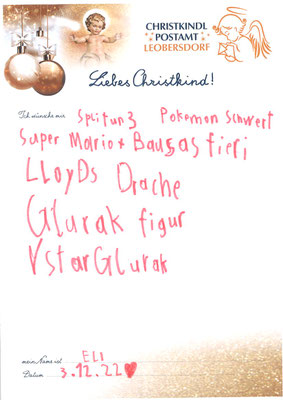 CHRISTKINDL
POSTAMT
LEOBERSDORF
Liebes Christkind!
Ich wünsche mir Splitun3 Pokemon Schwert
Super Mario + Baugastieri
LLoyDs Drache
Glurak figur
VstarGlurak
mein Name ist ELI
Datum 3.12.22